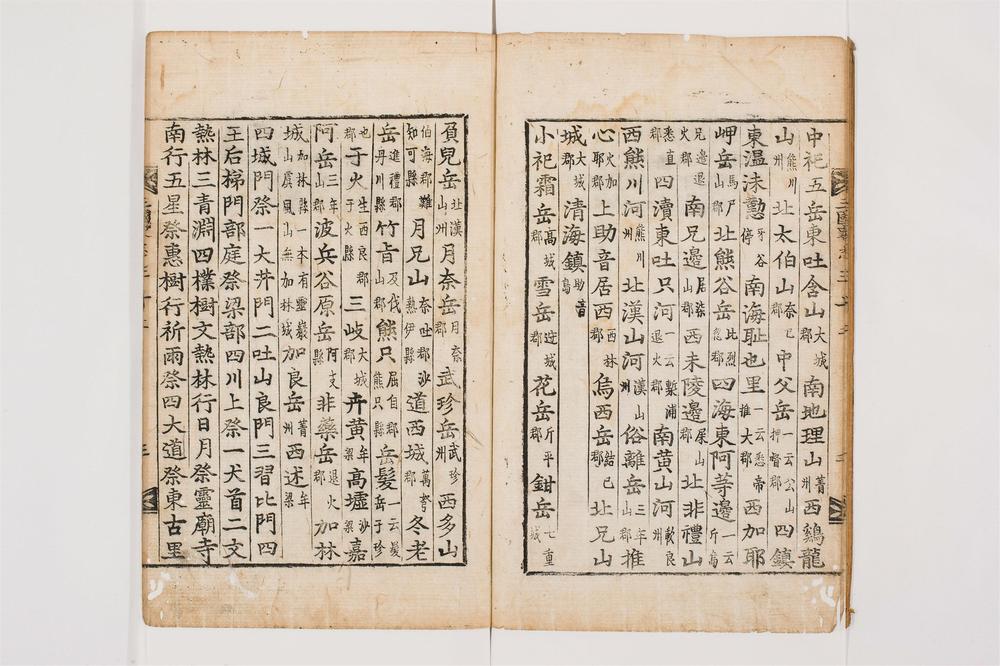 中祀五岳東吐含山大城郡南地理山菁州西鷄龍
山熊川州北太伯山奈已郡中父岳一云公山押督郡四鎮
東溫沫懃牙谷停南海耻也里一云悉帝推火郡西加耶
岬岳馬尸山郡北熊谷岳比烈忽郡四海東阿等邊一云斤烏
兄邊退火郡南兄邊居柒山郡西未陵邊屎山郡北非禮山
悉直郡四瀆東吐只河一云槧浦退火郡南黄山河歃良州
西熊川河熊川州北漢山河漢山州俗離岳三年山郡推
心大加耶郡上助音居西西林郡烏西岳結已郡北兄山
城大城郡清海鎮助音島
小祀霜岳高城郡雪岳城郡花岳斤平郡鉗岳七重城
負兒岳北漢山州月奈岳月奈郡武珍岳武珍州西多山
伯海郡難知可縣月兄山奈吐郡沙熱伊縣道西城萬弩郡冬老
岳進禮郡丹川縣竹旨及伐山郡熊只屈自郡熊只縣岳髮一云髮岳于珍
也郡于火生西良郡于火縣三岐大城郡卉黄牟梁高墟沙梁嘉
阿岳三年山郡波兵谷原岳阿支縣非藥岳退火郡加林
城加林縣一本有靈嵒山虞風山無加林城加良岳菁州西述牟梁
四城門祭一大井門二吐山良門三習比門四
王后梯門部庭祭梁部四川上祭一犬首二文
熱林三青淵四樸樹文熱林行日月祭靈廟寺
南行五星祭惠樹行祈雨祭四大道祭東古里